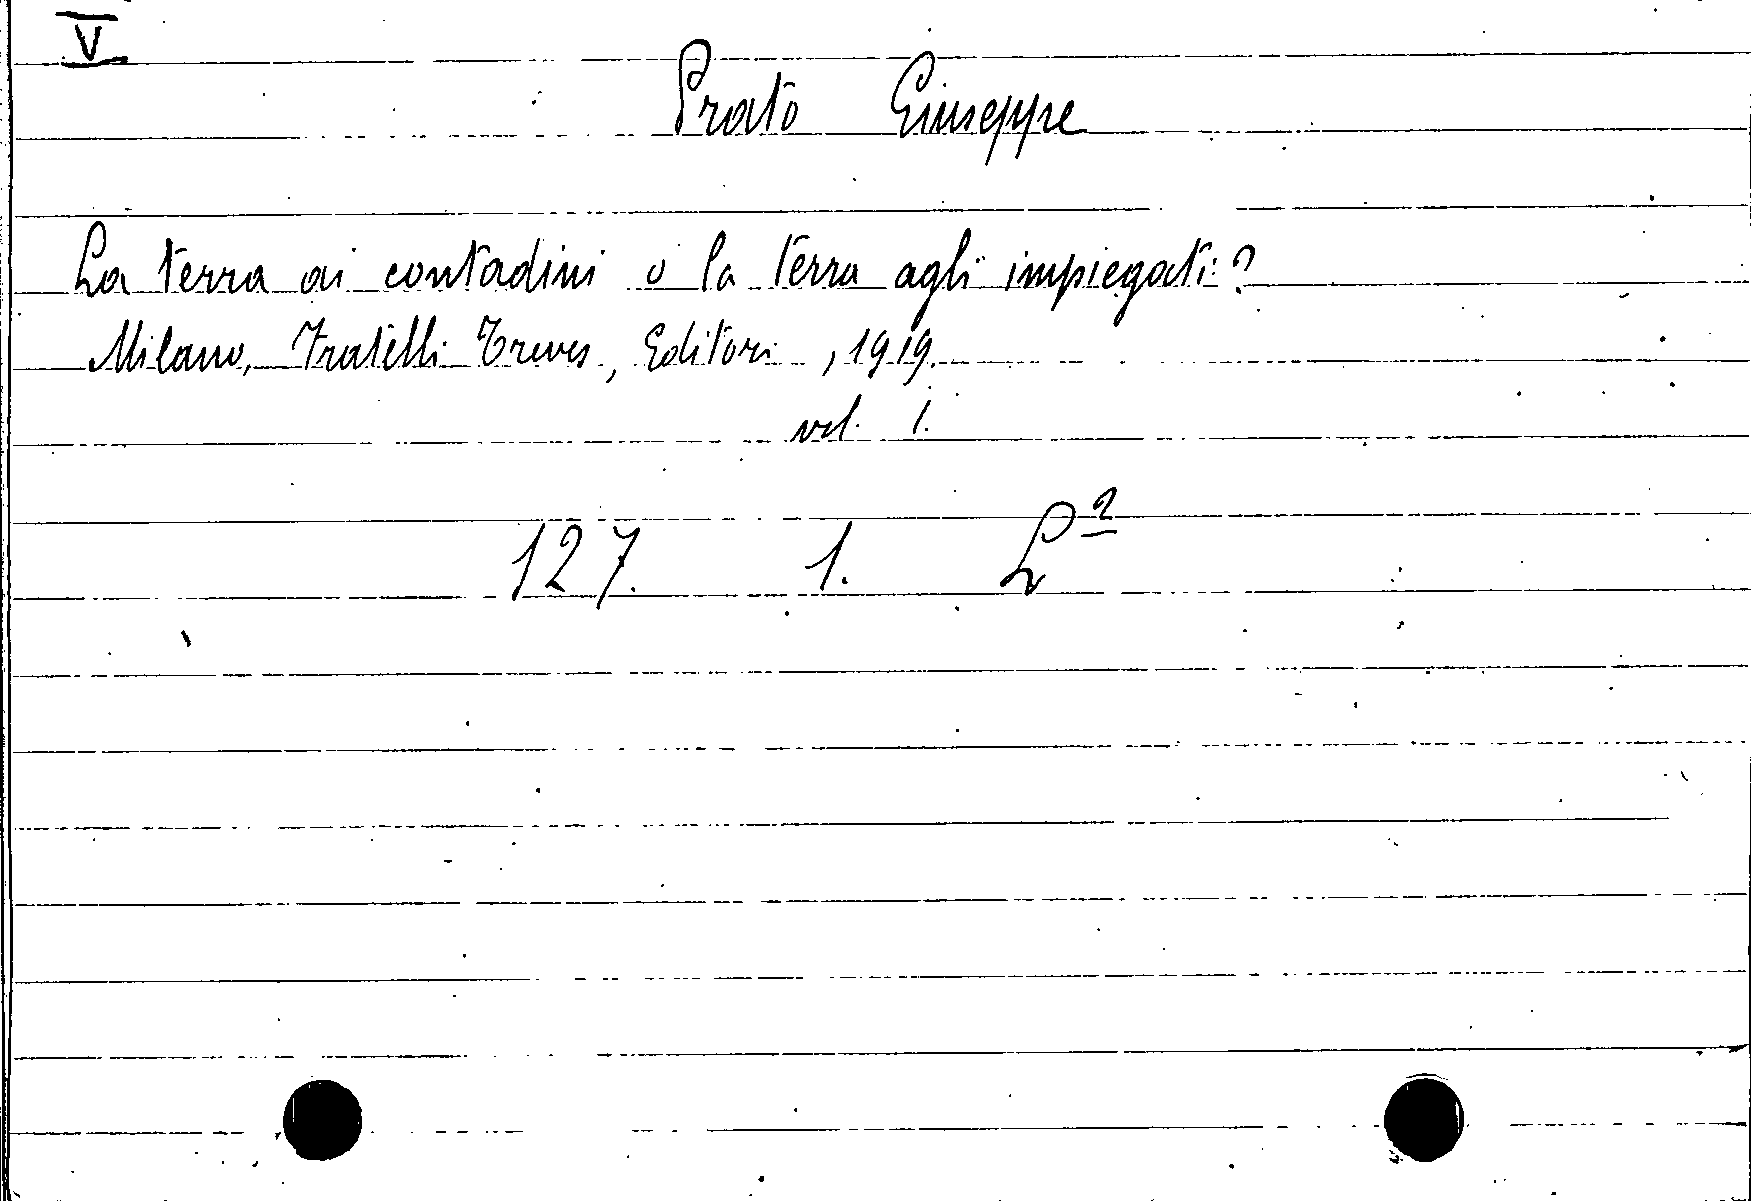 V
Prato Giuseppe
La terra ai contadini o la terra agli impiegati?
Milano, Fratelli Treves, Editori, 1919.
vol. 1.
127. 1. L²